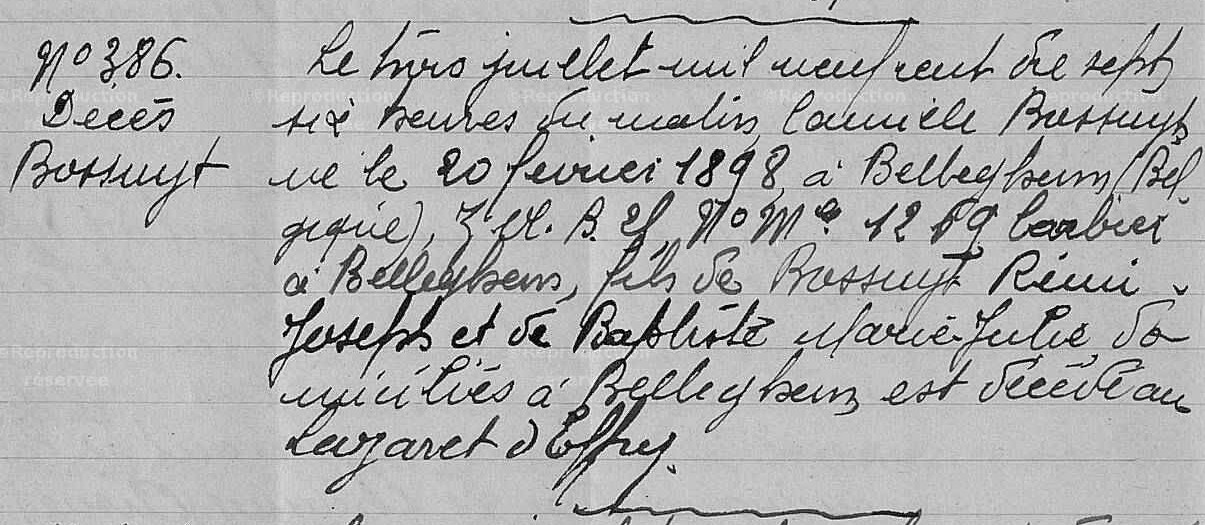 No 386.
Décès
Bossuyt
Le trois juillet mil neuf cent dix sept
six heures du matin, Camiele Bossuyt,
né le 20 février 1898 à Belleghem (Bel
gique), Z. A. B. 21, No Mle 1219 barbier
à Belleghem, fils de Bossuyt Rémi
Joseph et de Baptiste Marie-Julie, do
miciliés à Belleghem, est décédé au
Lazaret d'Effry.
©Reproduction
réservée